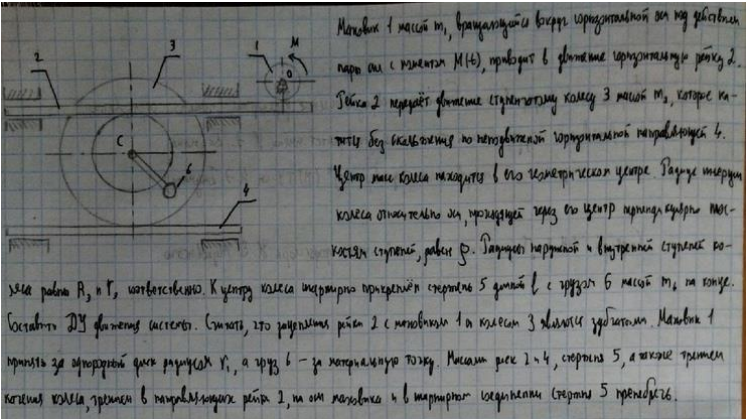 Маховик 1 массой m₁, вращающийся вокруг горизонтальной оси под действием
пары сил с моментом M(t), приводит в движение горизонтальную рейку 2.
Рейка 2 передаёт движение ступенчатому колесу 3 массой m₃, которое ка-
тится без скольжения по неподвижной горизонтальной направляющей 4.
Центр масс колеса находится в его геометрическом центре. Радиус инерции
колеса относительно оси, проходящей через его центр перпендикулярно плос-
костям ступеней, равен ρ. Радиусы наружной и внутренней ступеней ко-
леса равны R₃ и r₃ соответственно. К центру колеса шарнирно прикреплён стержень 5 длиной l с грузом 6 массой m₆ на конце.
Составить ДУ движения системы. Считать, что зацепления рейки 2 с маховиком 1 и колесом 3 являются зубчатыми. Маховик 1
принять за однородный диск радиусом r₁, а груз 6 – за материальную точку. Массами реек 2 и 4, стержня 5, а также трением
качения колеса, трением в направляющих рейки 2, на оси маховика и в шарнирном соединении стержня 5 пренебречь.
2
3
1
M
O
C
6
4